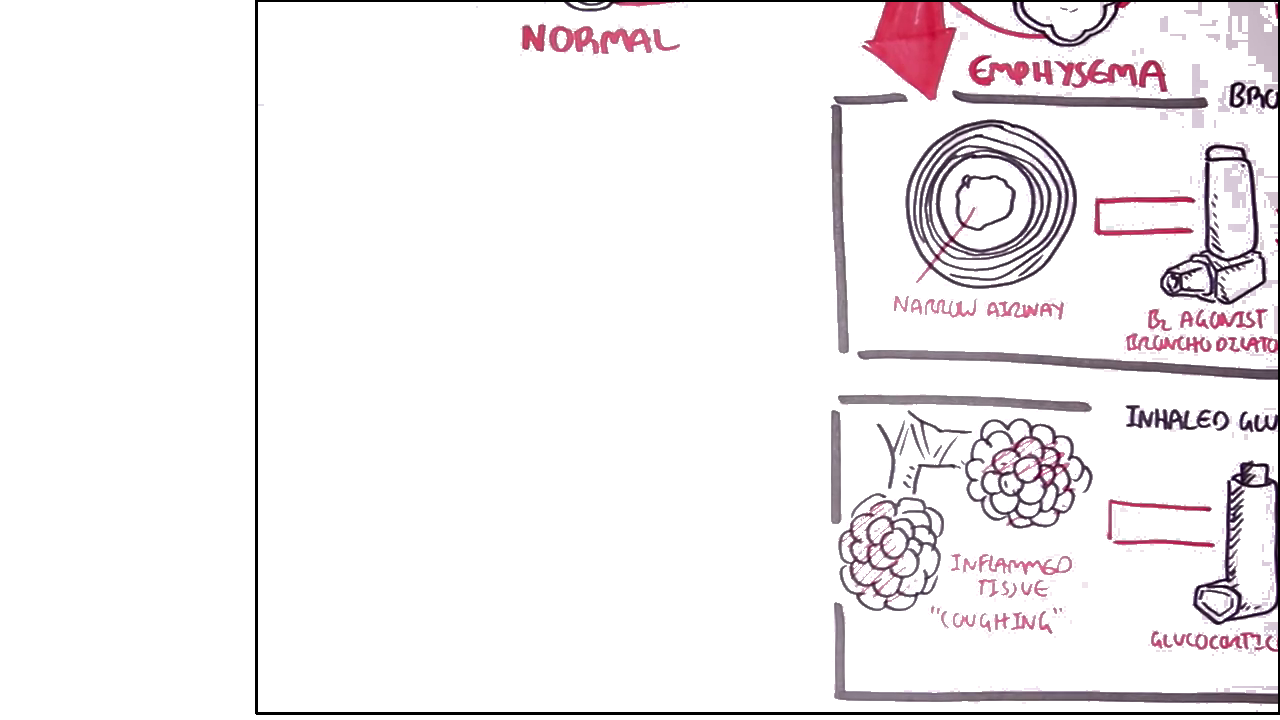 NORMAL
EMPHYSEMA
BRO
NARROW AIRWAY
B2 AGONIST
BRONCHODILATO
INHALED GLU
INFLAMMED
TISSUE
"COUGHING"
GLUCOCORTIC